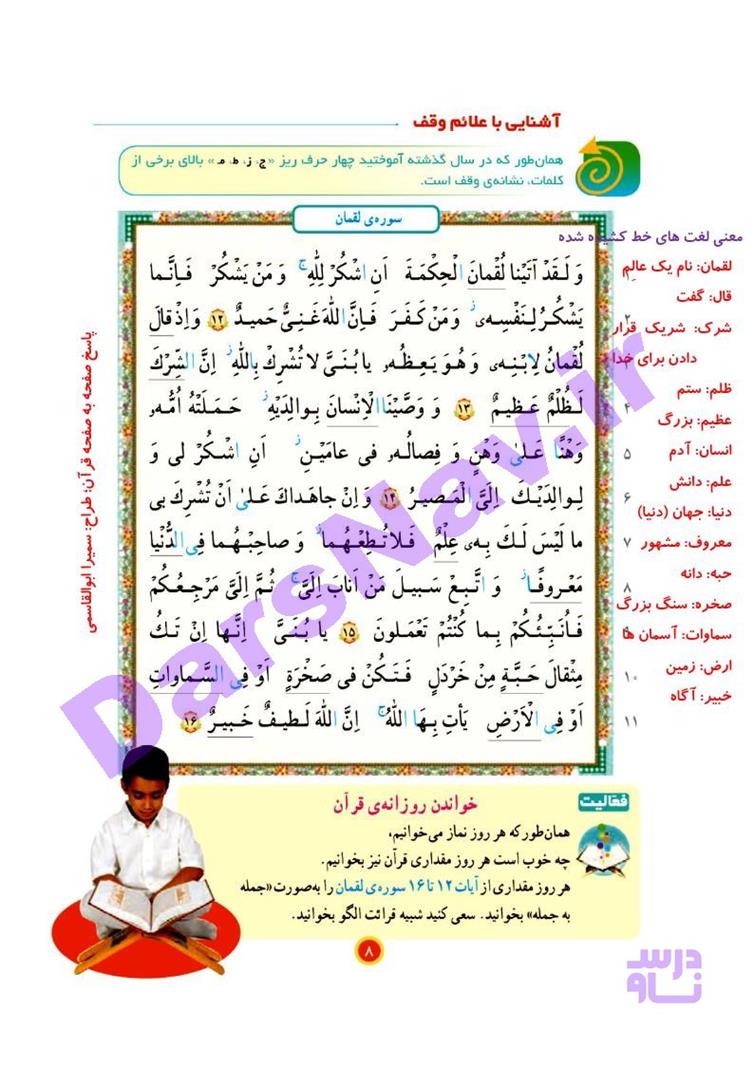 آشنایی با علائم وقف
همان‌طور که در سال گذشته آموختید چهار حرف ریز «ج، ز، ط، م» بالای برخی از
کلمات، نشانه‌ی وقف است.
سوره‌ی لقمان
وَ لَقَدْ آتَيْنا لُقْمانَ الْحِكْمَةَ اَنِ اشْكُرْ لِلّٰهِ ۚ وَ مَنْ يَشْكُرْ فَاِنَّما
يَشْكُرُ لِنَفْسِهٖ ز وَ مَنْ كَفَرَ فَاِنَّ اللّٰهَ غَنِىٌّ حَميدٌ ١٢ وَ اِذْ قالَ
لُقْمانُ لِابْنِهٖ وَ هُوَ يَعِظُهُ يا بُنَىَّ لا تُشْرِكْ بِاللّٰهِ ز اِنَّ الشِّرْكَ
لَظُلْمٌ عَظيمٌ ١٣ وَ وَصَّيْنَا الْاِنْسانَ بِوالِدَيْهِ ز حَمَلَتْهُ اُمُّهُ
وَهْنًا عَلىٰ وَهْنٍ وَ فِصالُهُ فى عامَيْنِ ز اَنِ اشْكُرْ لى وَ
لِوالِدَيْكَ اِلَىَّ الْمَصيرُ ١٤ وَ اِنْ جاهَداكَ عَلىٰ اَنْ تُشْرِكَ بى
ما لَيْسَ لَكَ بِهٖ عِلْمٌ فَلا تُطِعْهُما ز وَ صاحِبْهُما فِى الدُّنْيا
مَعْروفًا ز وَ اتَّبِعْ سَبيلَ مَنْ اَنابَ اِلَىَّ ۚ ثُمَّ اِلَىَّ مَرْجِعُكُمْ
فَاُنَبِّئُكُمْ بِما كُنْتُمْ تَعْمَلونَ ١٥ يا بُنَىَّ اِنَّها اِنْ تَكُ
مِثْقالَ حَبَّةٍ مِنْ خَرْدَلٍ فَتَكُنْ فى صَخْرَةٍ اَوْ فِى السَّماواتِ
اَوْ فِى الْاَرْضِ يَأْتِ بِهَا اللّٰهُ ۚ اِنَّ اللّٰهَ لَطيفٌ خَبيرٌ ١٦
معنی لغت های خط کشیده شده
لقمان: نام یک عالِمِ
قال: گفت
شرک: شریک قرار
دادن برای خدا
ظلم: ستم
عظیم: بزرگ
انسان: آدم
علم: دانش
دنیا: جهان (دنیا)
معروف: مشهور
حبه: دانه
صخره: سنگ بزرگ
سماوات: آسمان ها
ارض: زمین
خبیر: آگاه
۲
۴
۵
۶
۷
۸
۱۰
۱۱
پاسخ صفحه به صفحه قرآن: طراح: سمیرا ابوالقاسمی
DarsNav.ir
فعّالیت
خواندن روزانه‌ی قرآن
همان‌طور که هر روز نماز می‌خوانیم،
چه خوب است هر روز مقداری قرآن نیز بخوانیم.
هر روز مقداری از آیات ۱۲ تا ۱۶ سوره‌ی لقمان را به‌صورت «جمله
به جمله» بخوانید. سعی کنید شبیه قرائت الگو بخوانید.
۸
درس
ناو